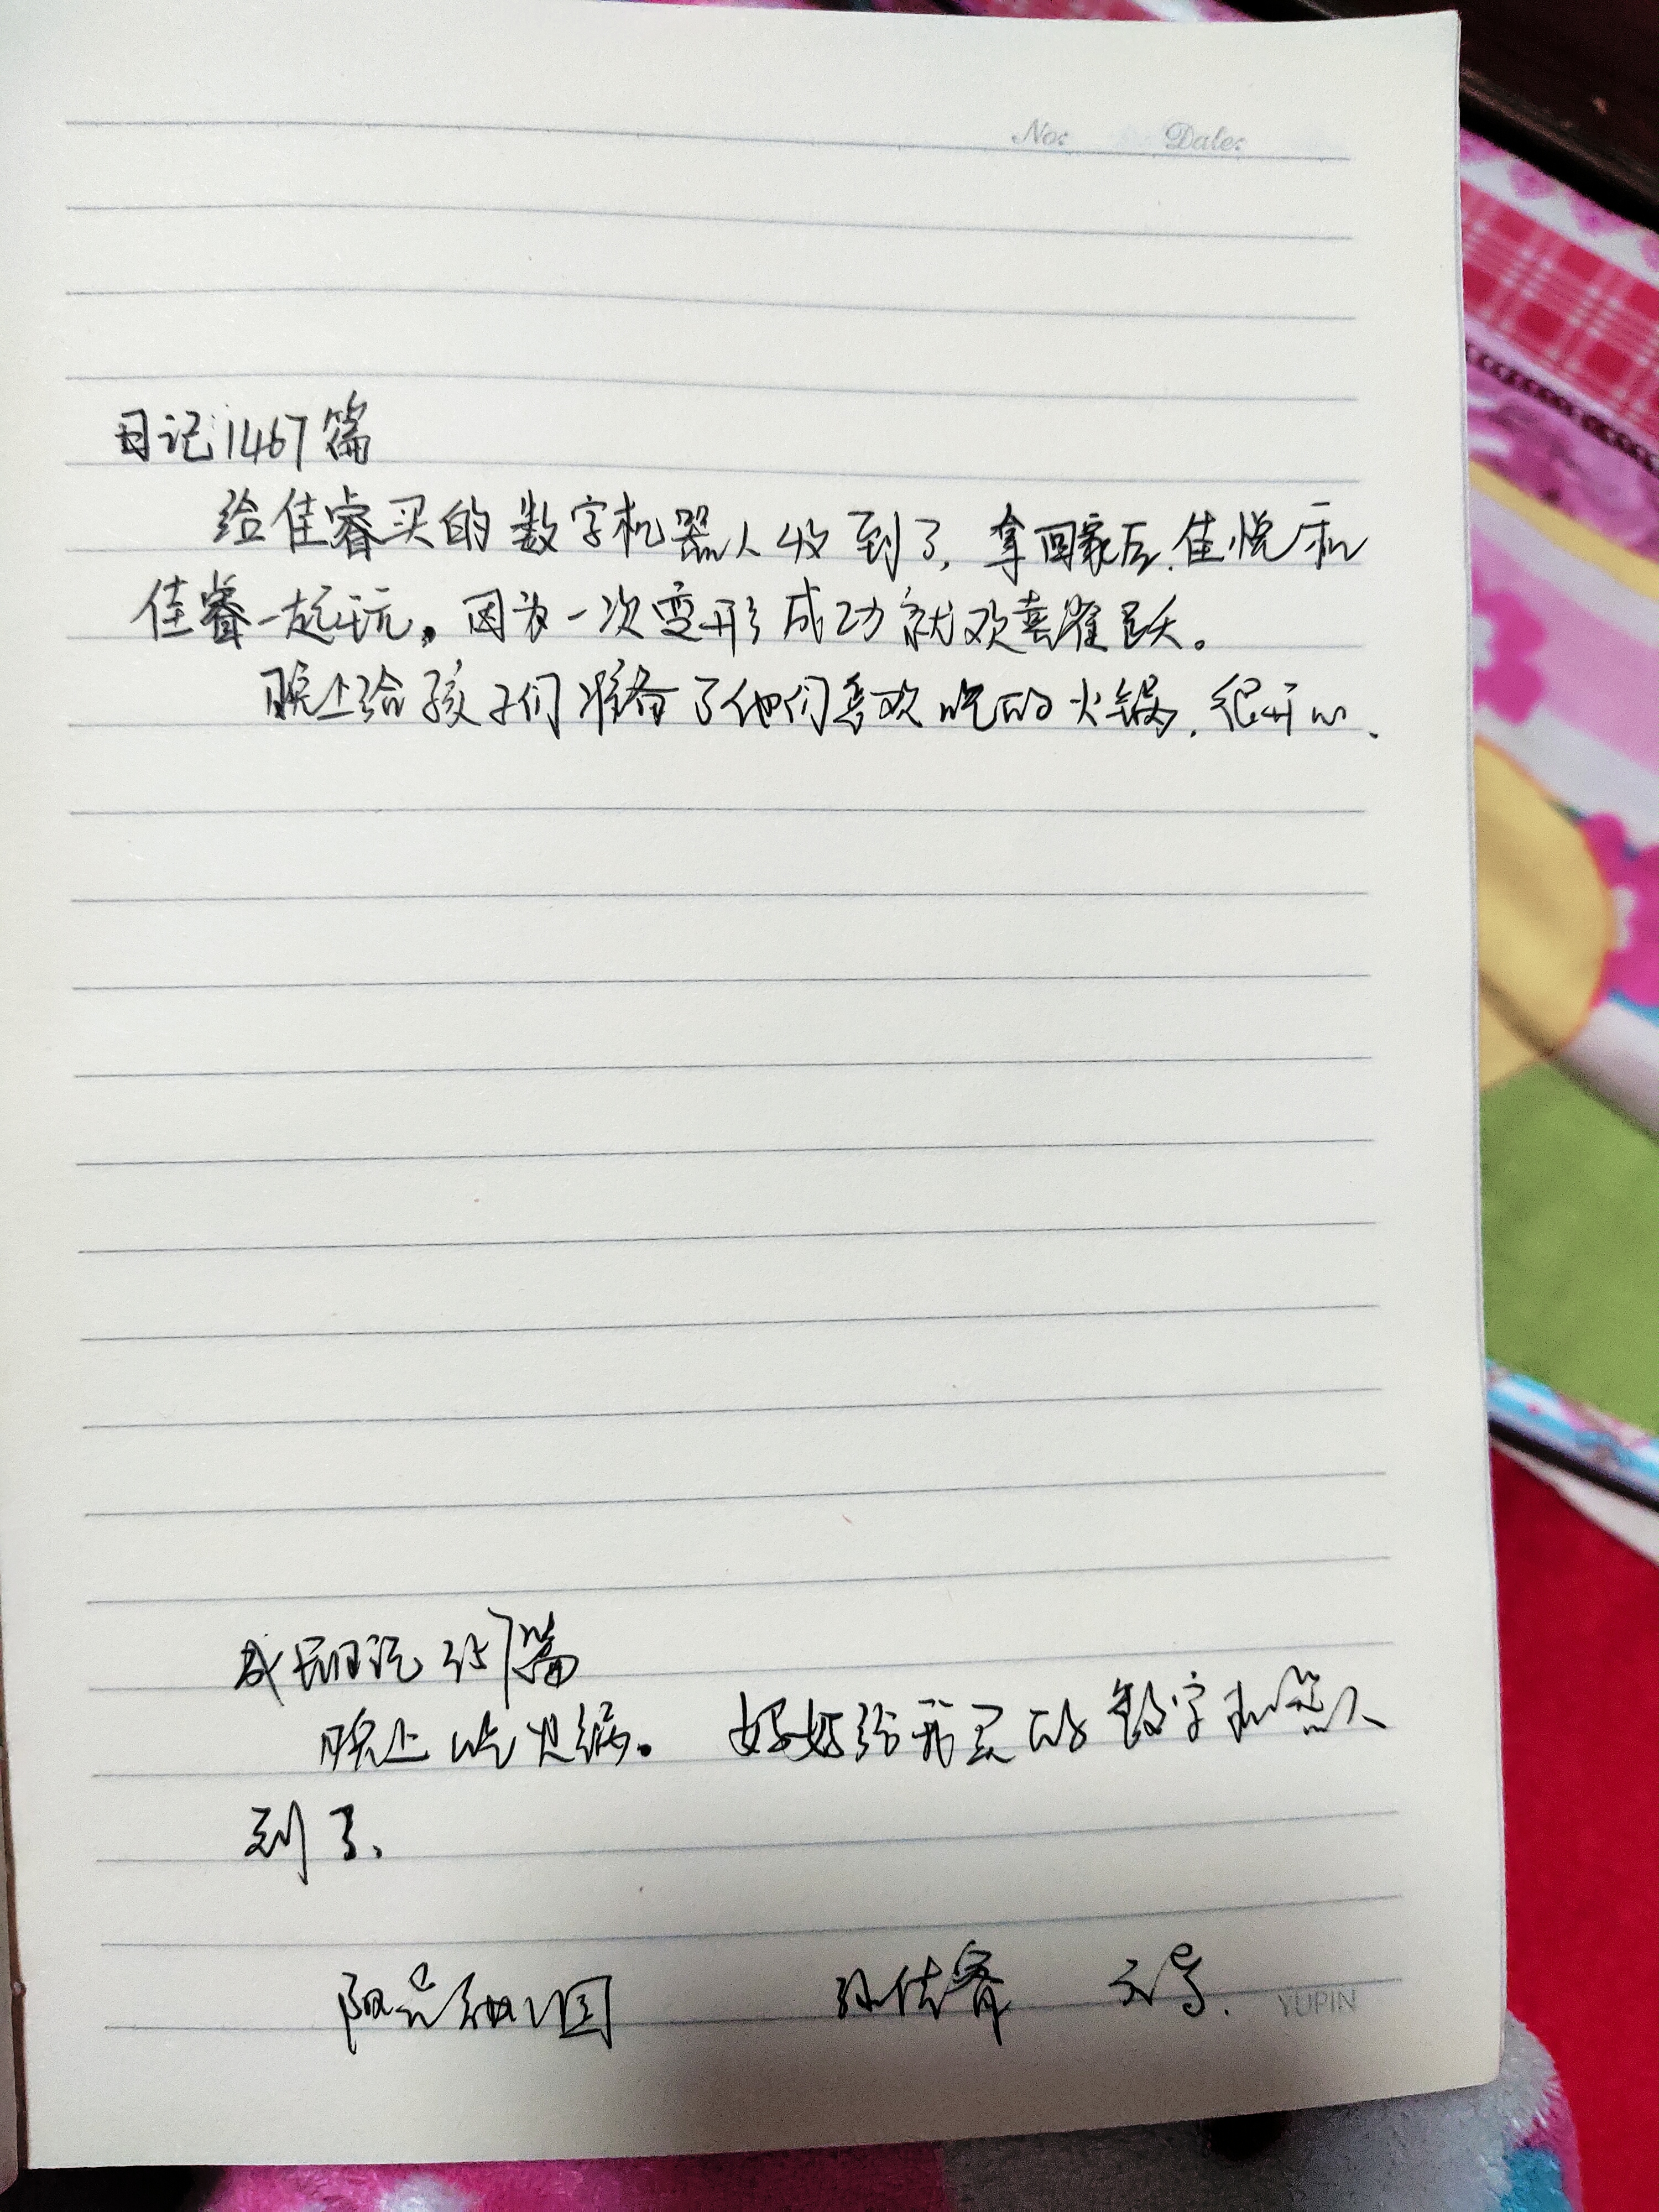 No: Date:
日记1467篇
给佳睿买的数字机器人收到了，拿回家后，佳悦和
佳睿一起玩。因为一次变形成功就欢喜雀跃。
晚上给孩子们准备了他们喜欢吃的火锅，很开心、
成长日记 257篇
晚上吃火锅。 妈妈给我买的数字机器人
到了、
佳睿
YUPIN